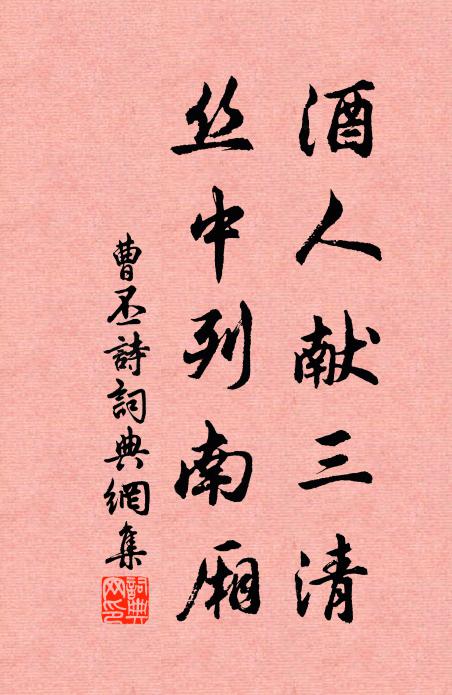 酒人献三清
丝中列南厢
曹丕詩詞典網集
詞典網印